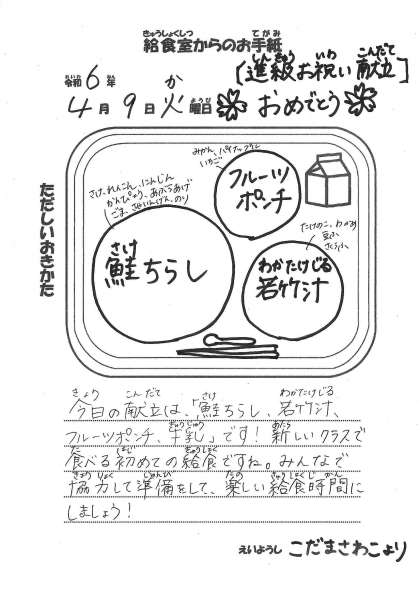 給食室からのお手紙
きゅうしょくしつ てがみ
令和6年
れいわ ねん
4月9日火曜日
がつ にち か ようび
[進級お祝い献立]
しんきゅう いわ こんだて
おめでとう
ただしいおきかた
さけ、れんこん、にんじん
かんぴょう、あぶらあげ
ごま、さやいんげん、のり
さけ
鮭ちらし
みかん、パイナップル
いちご
フルーツ
ポンチ
たけのこ、わかめ
わかたけじる
若竹汁
きょう こんだて さけ わかたけじる
今日の献立は、「鮭ちらし、若竹汁、
ぎゅうにゅう あたら
フルーツポンチ、牛乳」です!新しいクラスで
た はじ きゅうしょく
食べる初めての給食ですね。みんなで
きょうりょく じゅんび たの きゅうしょくじかん
協力して準備をして、楽しい給食時間に
しましょう!
えいようし こだまさわこより